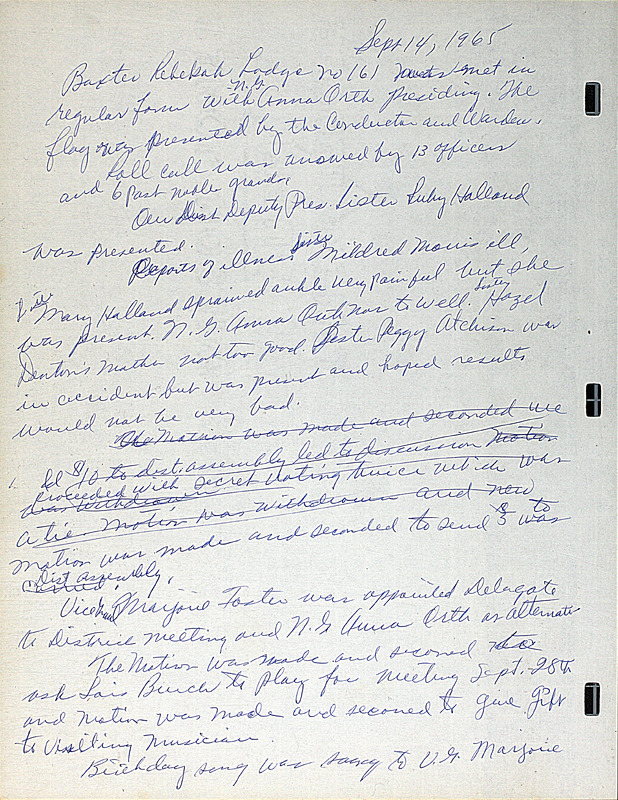 Sept 14, 1965
Baxter Rebekah Lodge no 161 met in
regular form with N.G. Anna Orth presiding. The
flag was presented by the Conductor and Warden.
Roll call was answered by 13 officers
and 6 Past noble grands.
Our Dist Deputy Pres. Sister Ruby Halland
was presented.
Reports of illness Sister Mildred Morris ill,
Sister Mary Halland sprained ankle very painful but she
was present. N.G. Anna Orth not to well. Sister Hazel
Denton's Mother not too good. Sister Peggy Atchison was
in accident but was present and hoped results
would not be very bad.
The Motion was made and seconded we
1. $10 to dist. assembly led to discussion motion
was withdrawn
proceeded with secret voting twice which was
a tie. Motion was withdrawn and new
motion was made and seconded to send $5 to
was
Dist assembly.
carried.
Vice Grand Marjorie Foster was appointed Delagate
to District meeting and N.G Anna Orth as alternate
The Motion was made and seconed to
ask Lois Burch to play for meeting Sept. 28th
and motion was made and seconed to give gift
to visiting musician.
Birthday song was sang to V.G. Marjorie